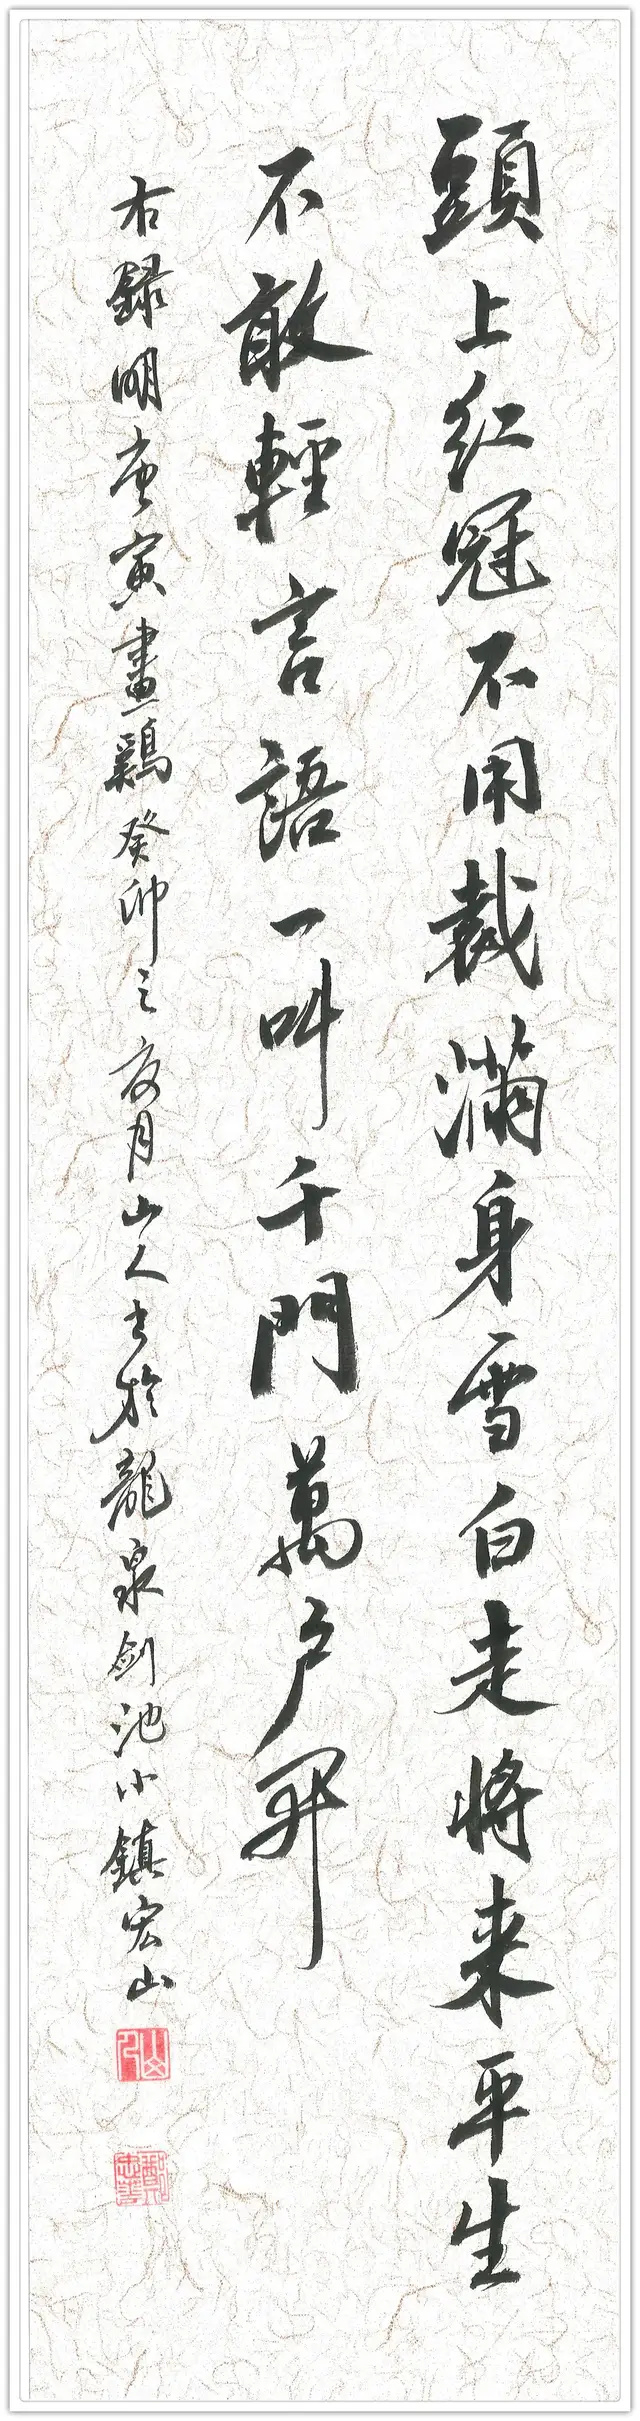 頭上紅冠不用裁滿身雪白走將来平生
不敢輕言語一叫千門萬户開
右録明唐寅畫鷄癸卯之夏月山人書於龍泉劍池小鎮宏山
山人